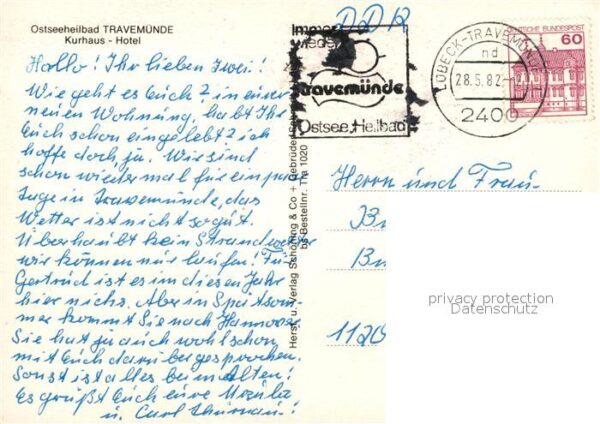 Ostseeheilbad TRAVEMÜNDE
Kurhaus - Hotel
Hallo! Ihr lieben zwei!
Wie geht es Euch? in eurer
neuen Wohnung, habt Ihr
Euch schon eingelebt? ich
hoffe doch, ja. Wir sind
schon wieder mal für ein paar
Tage in Travemünde, das
Wetter ist nicht so gut.
Überhaubt kein Strandwetter
wir können nur laufen! Für
Gertrud ist es in diesem Jahr
hier nichs. Aber in Spätsom
mer kommt Sie nach Hannover
Sie hat ja auch wohl schon
mit Euch darüber gesprochen.
Sonst ist alles beim Alten!
Es grüßt Euch eure Ursula
u. Carl
Herst. u. Verlag Schöning & Co + Gebrüder
Bestellnr. Tra 1020
DDR
Immer
wieder
travemünde
Ostsee Heilbad
LÜBECK-TRAVEMÜNDE
nd
28.5.82
2400
DEUTSCHE BUNDESPOST
60
Herrn und Frau
1120
privacy protection
Datenschutz